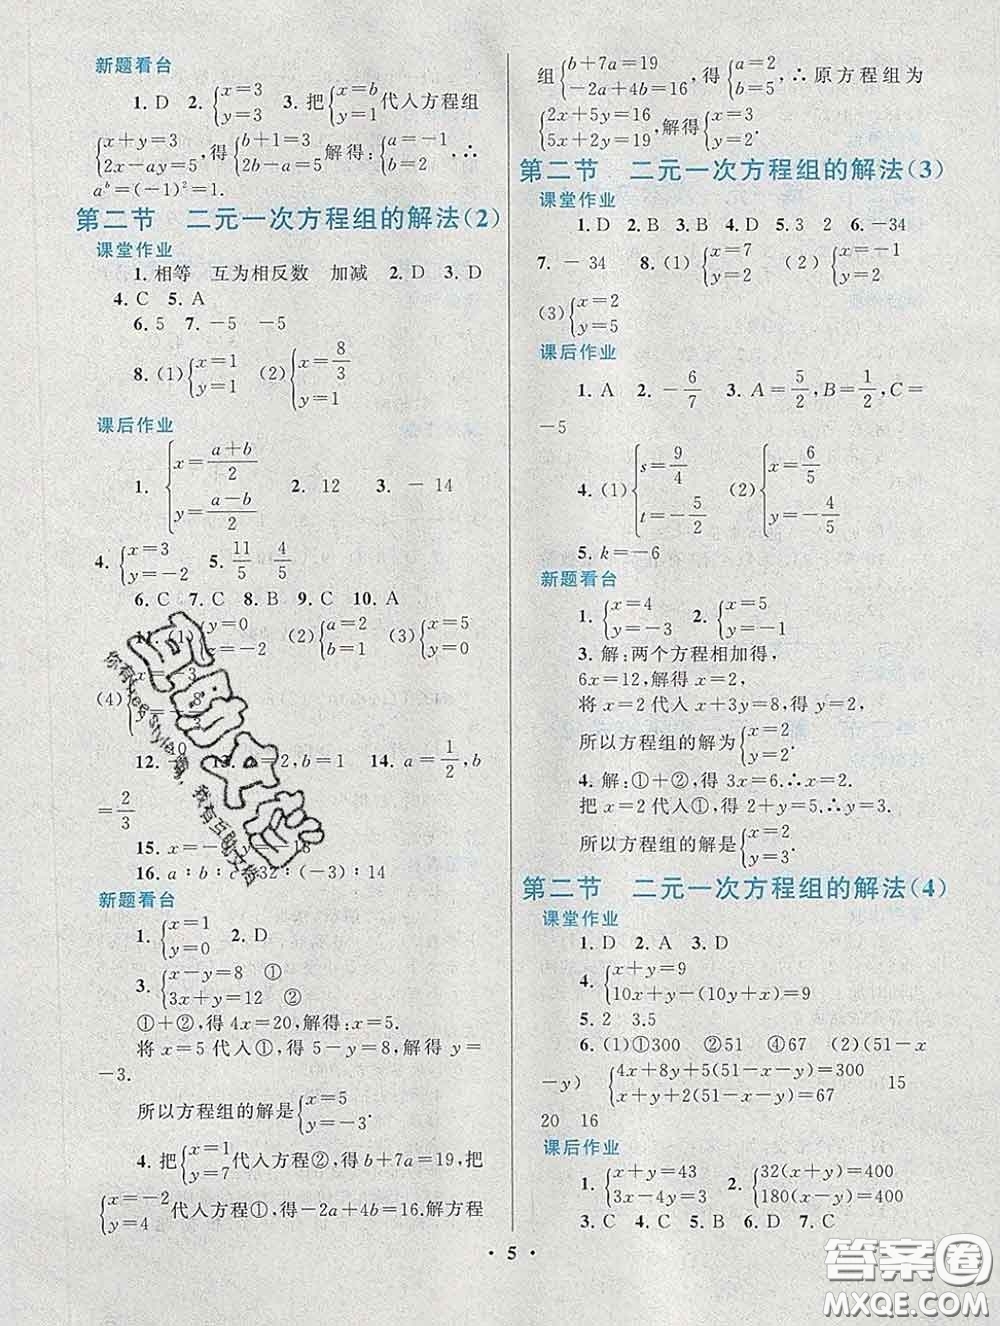 新题看台
1. D 2. {x=3 y=3 3. 把{x=b y=1代入方程组
{x+y=3 2x-ay=5,得{b+1=3 2b-a=5解得:{a=-1 b=2,∴
a^b=(-1)²=1.
第二节 二元一次方程组的解法(2)
课堂作业
1. 相等 互为相反数 加减 2. D 3. D
4. C 5. A
6. 5 7. -5 -5
8. (1){x=1 y=1 (2){x=8/3 y=1
课后作业
1. {x=(a+b)/2 y=(a-b)/2 2. 12 3. -14
4. {x=3 y=-2 5. 11/5 4/5
6. C 7. C 8. B 9. C 10. A
(1 y=0 x=-2 (2){a=2 b=1 (3){x=5 y=0
(4)
12. 13. ,b=1 14. a=1/2,b
=2/3
15. x=
16. a:b:c 32:(-3):14
新题看台
1. {x=1 y=0 2. D
3. {x-y=8 ① 3x+y=12 ②
①+②,得 4x=20,解得:x=5.
将 x=5 代入①,得 5-y=8,解得 y=
-3.
所以方程组的解是{x=5 y=-3.
4. 把{x=1 y=7代入方程②,得 b+7a=19,把
{x=-2 y=4代入方程①,得-2a+4b=16.解方程
组{b+7a=19 -2a+4b=16,得{a=2 b=5,∴原方程组为
{2x+5y=16 5x+2y=19,解得{x=3 y=2.
第二节 二元一次方程组的解法(3)
课堂作业
1. D 2. B 3. B 4. D 5. 3 2 6. -34
7. -34 8. (1){x=7 y=2 (2){x=-1 y=2
(3){x=2 y=5
课后作业
1. A 2. -6/7 3. A=5/2,B=1/2,C=
-5
4. (1){s=9/4 t=-5/2 (2){x=6/5 y=-4/5
5. k=-6
新题看台
1. {x=4 y=-3 2. {x=5 y=-1
3. 解:两个方程相加得,
6x=12,解得 x=2,
将 x=2 代入 x+3y=8,得 y=2,
所以方程组的解为{x=2 y=2.
4. 解:①+②,得 3x=6.∴x=2.
把 x=2 代入①,得 2+y=5,∴y=3.
所以方程组的解是{x=2 y=3.
第二节 二元一次方程组的解法(4)
课堂作业
1. D 2. A 3. D
4. {x+y=9 10x+y-(10y+x)=9
5. 2 3.5
6. (1)①300 ②51 ④67 (2)(51-x
-y) {4x+8y+5(51-x-y)=300 x+y+2(51-x-y)=67 15
20 16
课后作业
1. {x+y=43 3x-4y=3 2. {32(x+y)=400 180(x-y)=400
3. C 4. C 5. B 6. D 7. C
·5·
互助文档
你有free style吗,我有互助文档
答案圈
MXQE.COM